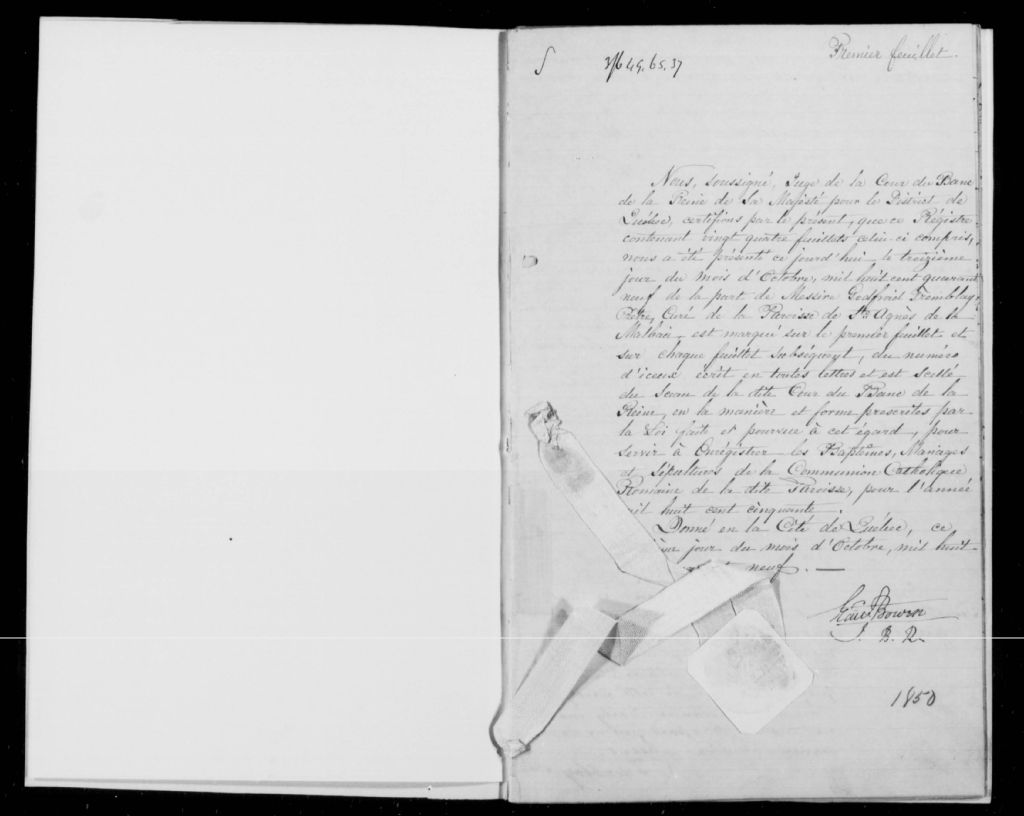 Premier feuillet.
Nous, soussigné, Juge de la Cour du Banc
de la Reine de Sa Majesté pour le District de
Québec, certifions par le présent, que ce Régistre
contenant vingt quatre feuillets celui-ci compris,
nous a été présenté ce jourd'hui le treizième
jour du mois d'Octobre, mil huit cent quarante
neuf de la part de Messire Godfroid Tremblay,
Prêtre, Curé de la Paroisse de Ste Agnès de la
Malbaie, est marqué sur le premier feuillet et
sur chaque feuillet subséquent, du numéro
d'iceux écrit en toutes lettres et est scellé
du Sceau de la dite Cour du Banc de la
Reine, en la manière et forme prescrites par
la Loi faite et pourvue à cet égard, pour
servir à Enrégistrer les Baptêmes, Mariages
et Sépultures de la Communion Catholique
Romaine de la dite Paroisse, pour l'année
mil huit cent cinquante.
Donné en la Cité de Québec, ce
jour du mois d'Octobre, mil huit
neuf. —
Edwd Bowen
J. B. R.
1850